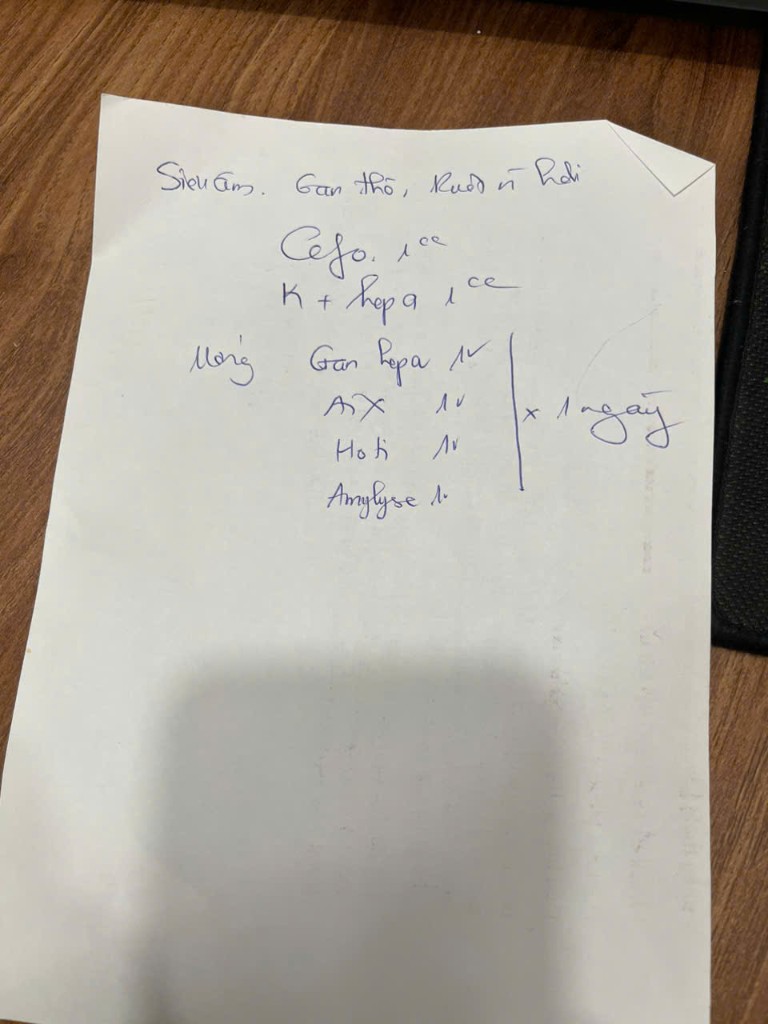 Siêu âm. Gan thô, Ruột ứ hơi
Cefo. 1cc
K + hepa 1cc
Uống Gan hepa 1v
AiX 1v
Hoti 1v
Amylyse 1.
x 1 ngày